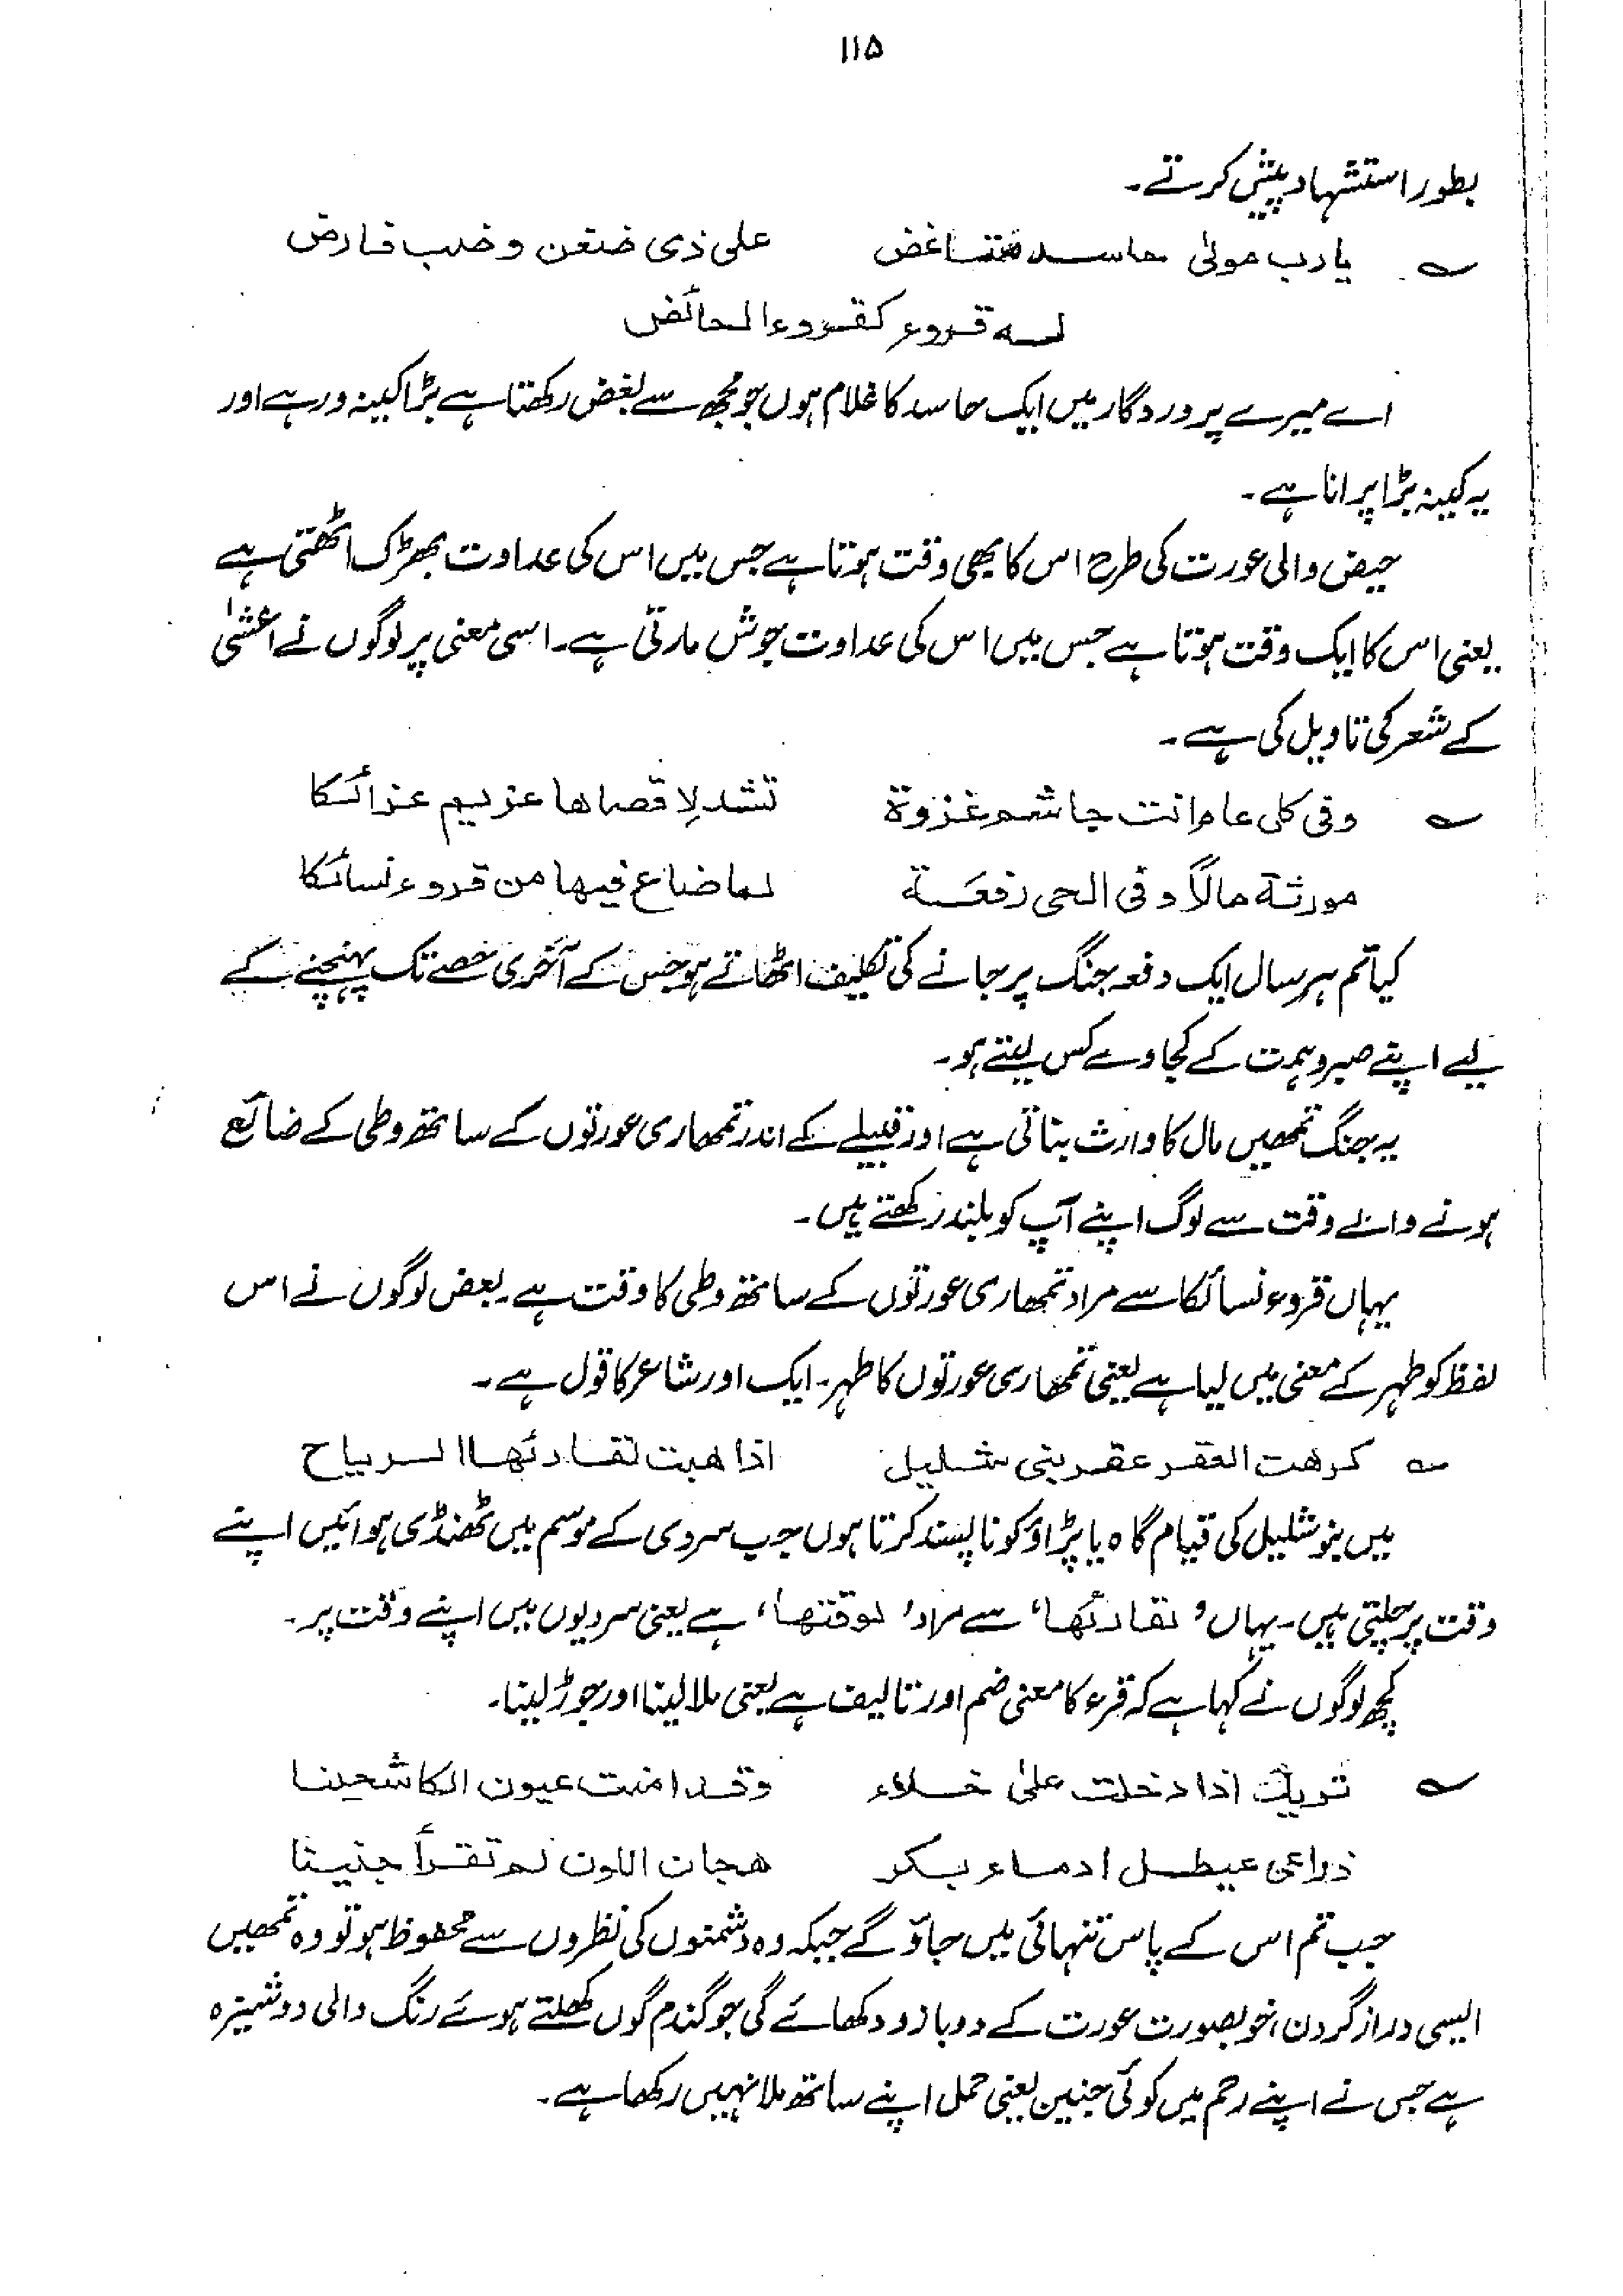 ۱۱۵
بطور استشہاد پیش کرتے۔
یا رب مولیٰ حاسد متباغض علی ذی ضغن وضب فارض
لہ قروء کقروء الحائض
اے میرے پروردگار میں ایک حاسد کا غلام ہوں جو مجھ سے بغض رکھتا ہے بڑا کینہ ور ہے اور
یہ کینہ بڑا پرانا ہے۔
حیض والی عورت کی طرح اس کا بھی وقت ہوتا ہے جس میں اس کی عداوت بھڑک اٹھتی ہے
یعنی اس کا ایک وقت ہوتا ہے جس میں اس کی عداوت جوش مارتی ہے۔ اسی معنی پر لوگوں نے اعشیٰ
کے شعر کی تاویل کی ہے۔
وفی کل عام انت جاشم غزوۃ تشد لِاقصاھا عزیم عزائکا
مورثۃ مالاً وفی الحی رفعۃ لما ضاع فیھا من قروء نسائکا
کیا تم ہر سال ایک دفعہ جنگ پر جانے کی تکلیف اٹھاتے ہو جس کے آخری حصے تک پہنچنے کے
لیے اپنے صبر و ہمت کے کجاوے کس لیتے ہو۔
یہ جنگ تمھیں مال کا وارث بناتی ہے اور قبیلے کے اندر تمھاری عورتوں کے ساتھ وطی کے ضائع
ہونے والے وقت سے لوگ اپنے آپ کو بلند رکھتے ہیں۔
یہاں قروء نسائکا سے مراد تمھاری عورتوں کے ساتھ وطی کا وقت ہے۔ بعض لوگوں نے اس
لفظ کو طہر کے معنی میں لیا ہے یعنی تمھاری عورتوں کا طہر۔ ایک اور شاعر کا قول ہے۔
کرھت العقر عقر بنی شلیل اذا ھبت لقارئھا الریاح
میں بنو شلیل کی قیام گاہ یا پڑاؤ کو ناپسند کرتا ہوں جب سردی کے موسم میں ٹھنڈی ہوائیں اپنے
وقت پر چلتی ہیں۔ یہاں ' لقارئھا ' سے مراد ' لوقتھا ' ہے یعنی سردیوں میں اپنے وقت پر۔
کچھ لوگوں نے کہا ہے کہ قرء کا معنی ضم اور تالیف ہے یعنی ملا لینا اور جوڑ لینا۔
تریک اذا دخلت علیٰ خلاء وقد امنت عیون الکاشحینا
ذراعی عیطل ادماء بکر ھجان اللون لم تقرأ جنینا
جب تم اس کے پاس تنہائی میں جاؤ گے جبکہ وہ دشمنوں کی نظروں سے محفوظ ہو تو وہ تمھیں
ایسی دراز گردن، خوبصورت عورت کے دو بازو دکھائے گی جو گندم گوں کھلتے ہوئے رنگ والی دوشیزہ
ہے جس نے اپنے رحم میں کوئی جنین یعنی حمل اپنے ساتھ ملا نہیں رکھا ہے۔